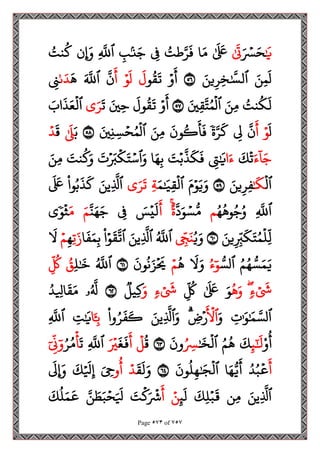 يَٰحَسْرَتَىٰ عَلَىٰ مَا فَرَّطتُ فِى جَنۢبِ ٱللَّهِ وَإِن كُنتُ
لَمِنَ ٱلسَّٰخِرِينَ ٥٦ أَوْ تَقُولَ لَوْ أَنَّ ٱللَّهَ هَدَىٰنِى
لَكُنتُ مِنَ ٱلْمُتَّقِينَ ٥٧ أَوْ تَقُولَ حِينَ تَرَى ٱلْعَذَابَ
لَوْ أَنَّ لِى كَرَّةً فَأَكُونَ مِنَ ٱلْمُحْسِنِينَ ٥٨ بَلَىٰ قَدْ
جَآءَتْكَ ءَايَٰتِى فَكَذَّبْتَ بِهَا وَٱسْتَكْبَرْتَ وَكُنتَ مِنَ
ٱلْكَٰفِرِينَ ٥٩ وَيَوْمَ ٱلْقِيَٰمَةِ تَرَى ٱلَّذِينَ كَذَبُوا۟ عَلَى
ٱللَّهِ وُجُوهُهُم مُّسْوَدَّةٌ ۚ أَلَيْسَ فِى جَهَنَّمَ مَثْوًى
لِّلْمُتَكَبِّرِينَ ٦٠ وَيُنَجِّى ٱللَّهُ ٱلَّذِينَ ٱتَّقَوْا۟ بِمَفَازَتِهِمْ لَا
يَمَسُّهُمُ ٱلسُّوٓءُ وَلَا هُمْ يَحْزَنُونَ ٦١ ٱللَّهُ خَٰلِقُ كُلِّ
شَىْءٍ ۖ وَهُوَ عَلَىٰ كُلِّ شَىْءٍ وَكِيلٌ ٦٢ لَّهُۥ مَقَالِيدُ
ٱلسَّمَٰوَٰتِ وَٱلْأَرْضِ ۗ وَٱلَّذِينَ كَفَرُوا۟ بِـَٔايَٰتِ ٱللَّهِ
أُو۟لَٰٓئِكَ هُمُ ٱلْخَٰسِرُونَ ٦٣ قُلْ أَفَغَيْرَ ٱللَّهِ تَأْمُرُوٓنِّىٓ
أَعْبُدُ أَيُّهَا ٱلْجَٰهِلُونَ ٦٤ وَلَقَدْ أُوحِىَ إِلَيْكَ وَإِلَى
ٱلَّذِينَ مِن قَبْلِكَ لَئِنْ أَشْرَكْتَ لَيَحْبَطَنَّ عَمَلُكَ
Page ٥٧٣ of ٧٥٧